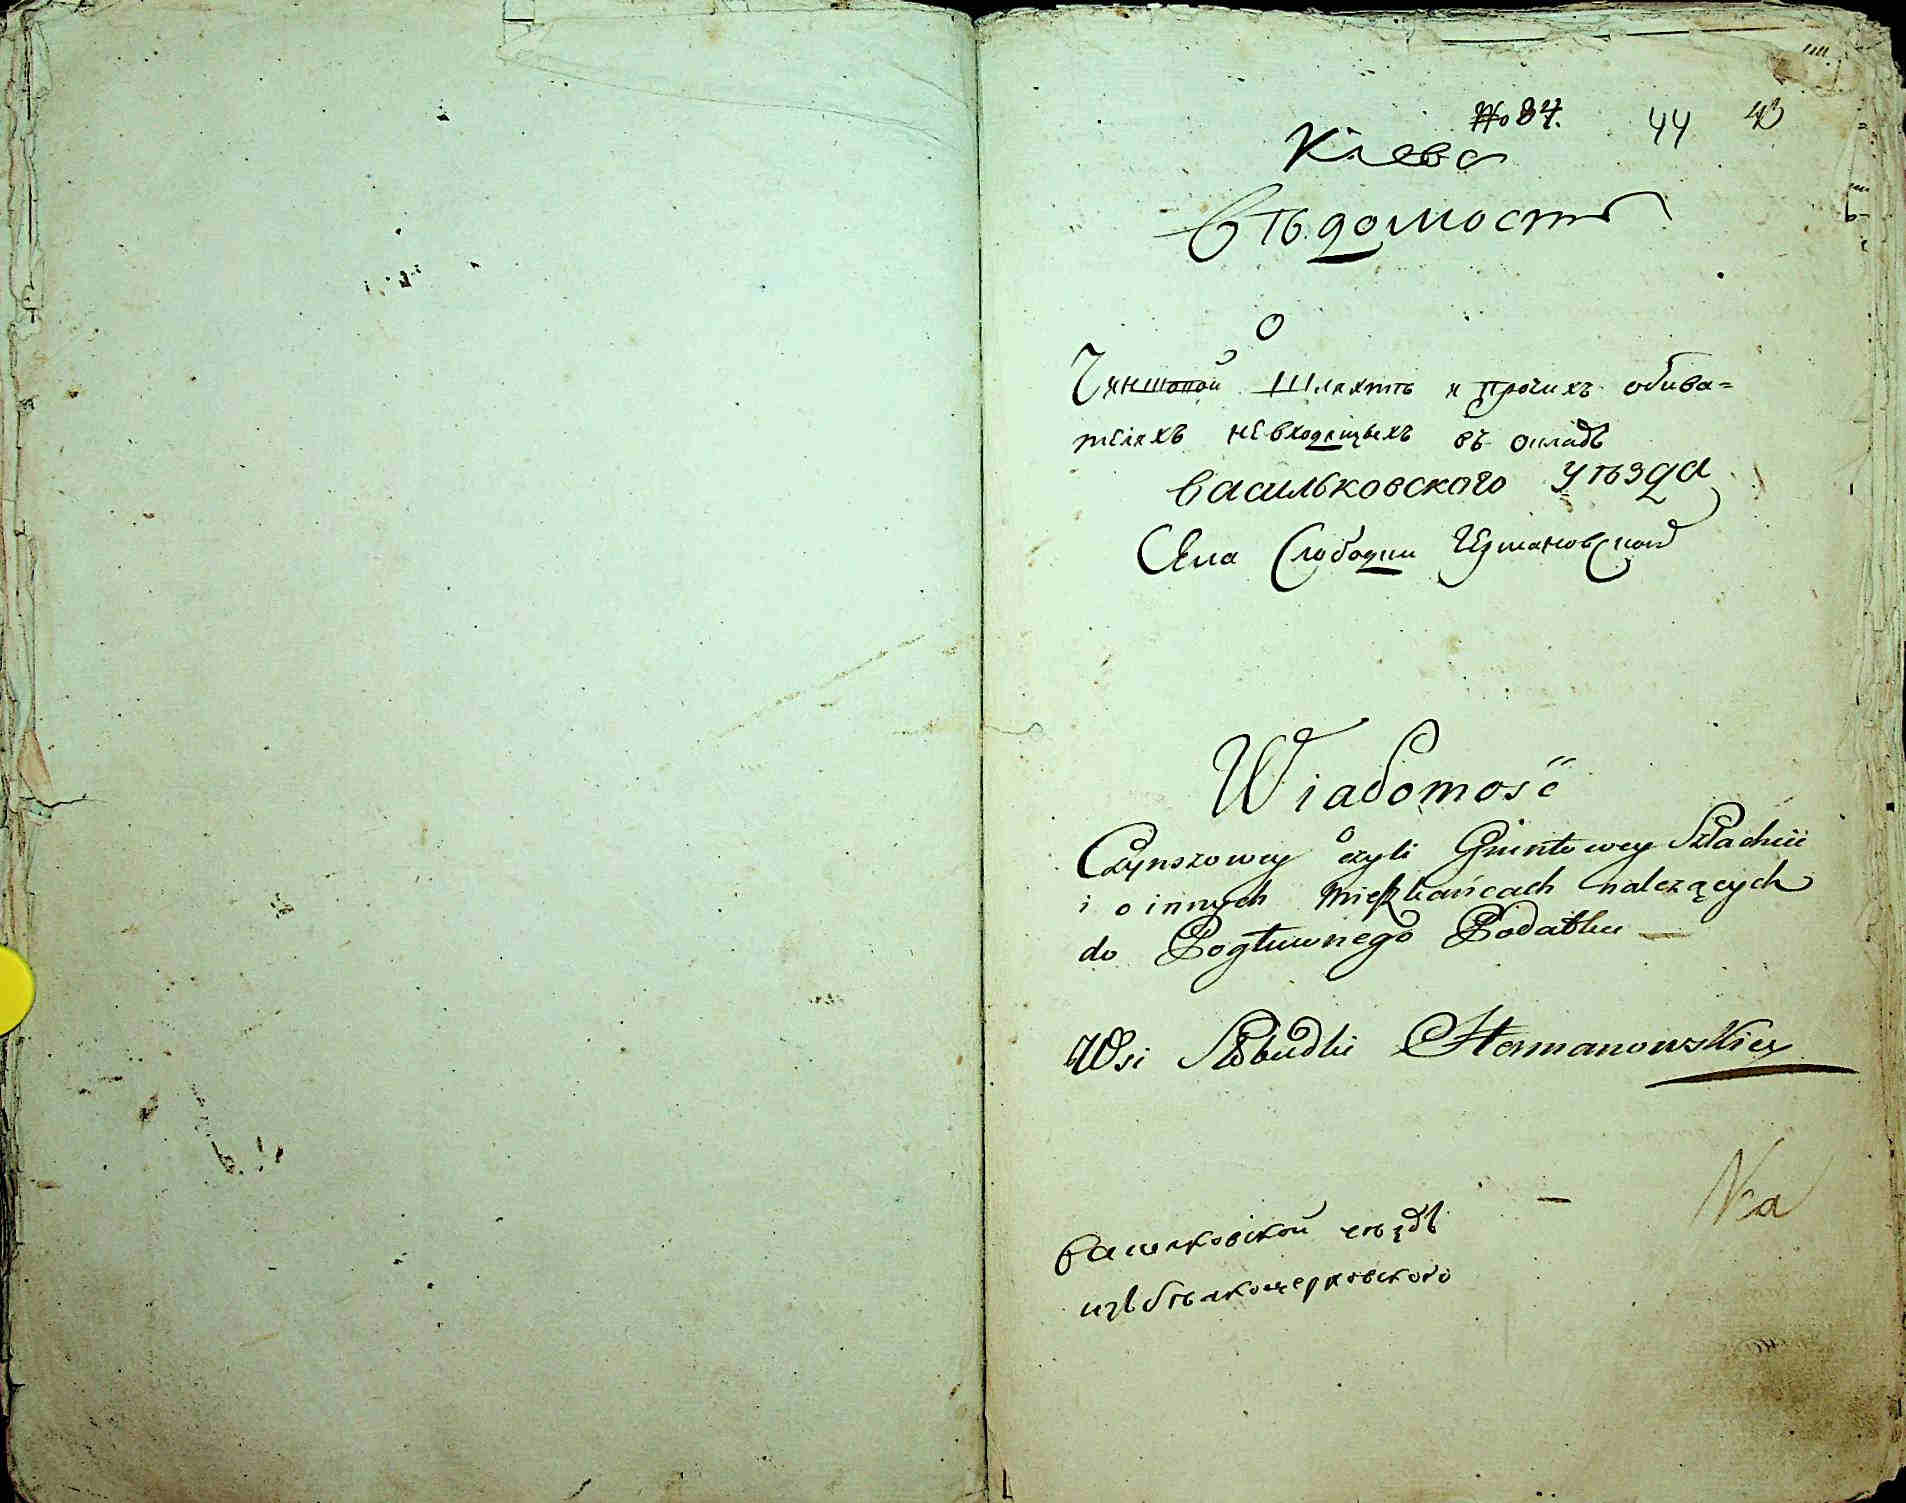 № 84. 44 43
Кіева
Вѣдомость
О
Чиншовой Шляхтѣ и прочихъ обива=
теляхъ невходящыхъ въ окладъ
Васильковского уѣзда
Села Слободки Германовской
Wiadomość
o
Czynszowey czyli Gruntowey Szlachcie
i o innych Mieszkańcach należących
do Pogłuwnego Podatku —
Wsi Słobudki Hermanowskiey
—
васильковской уѣздъ
изъ бѣлоцерковского